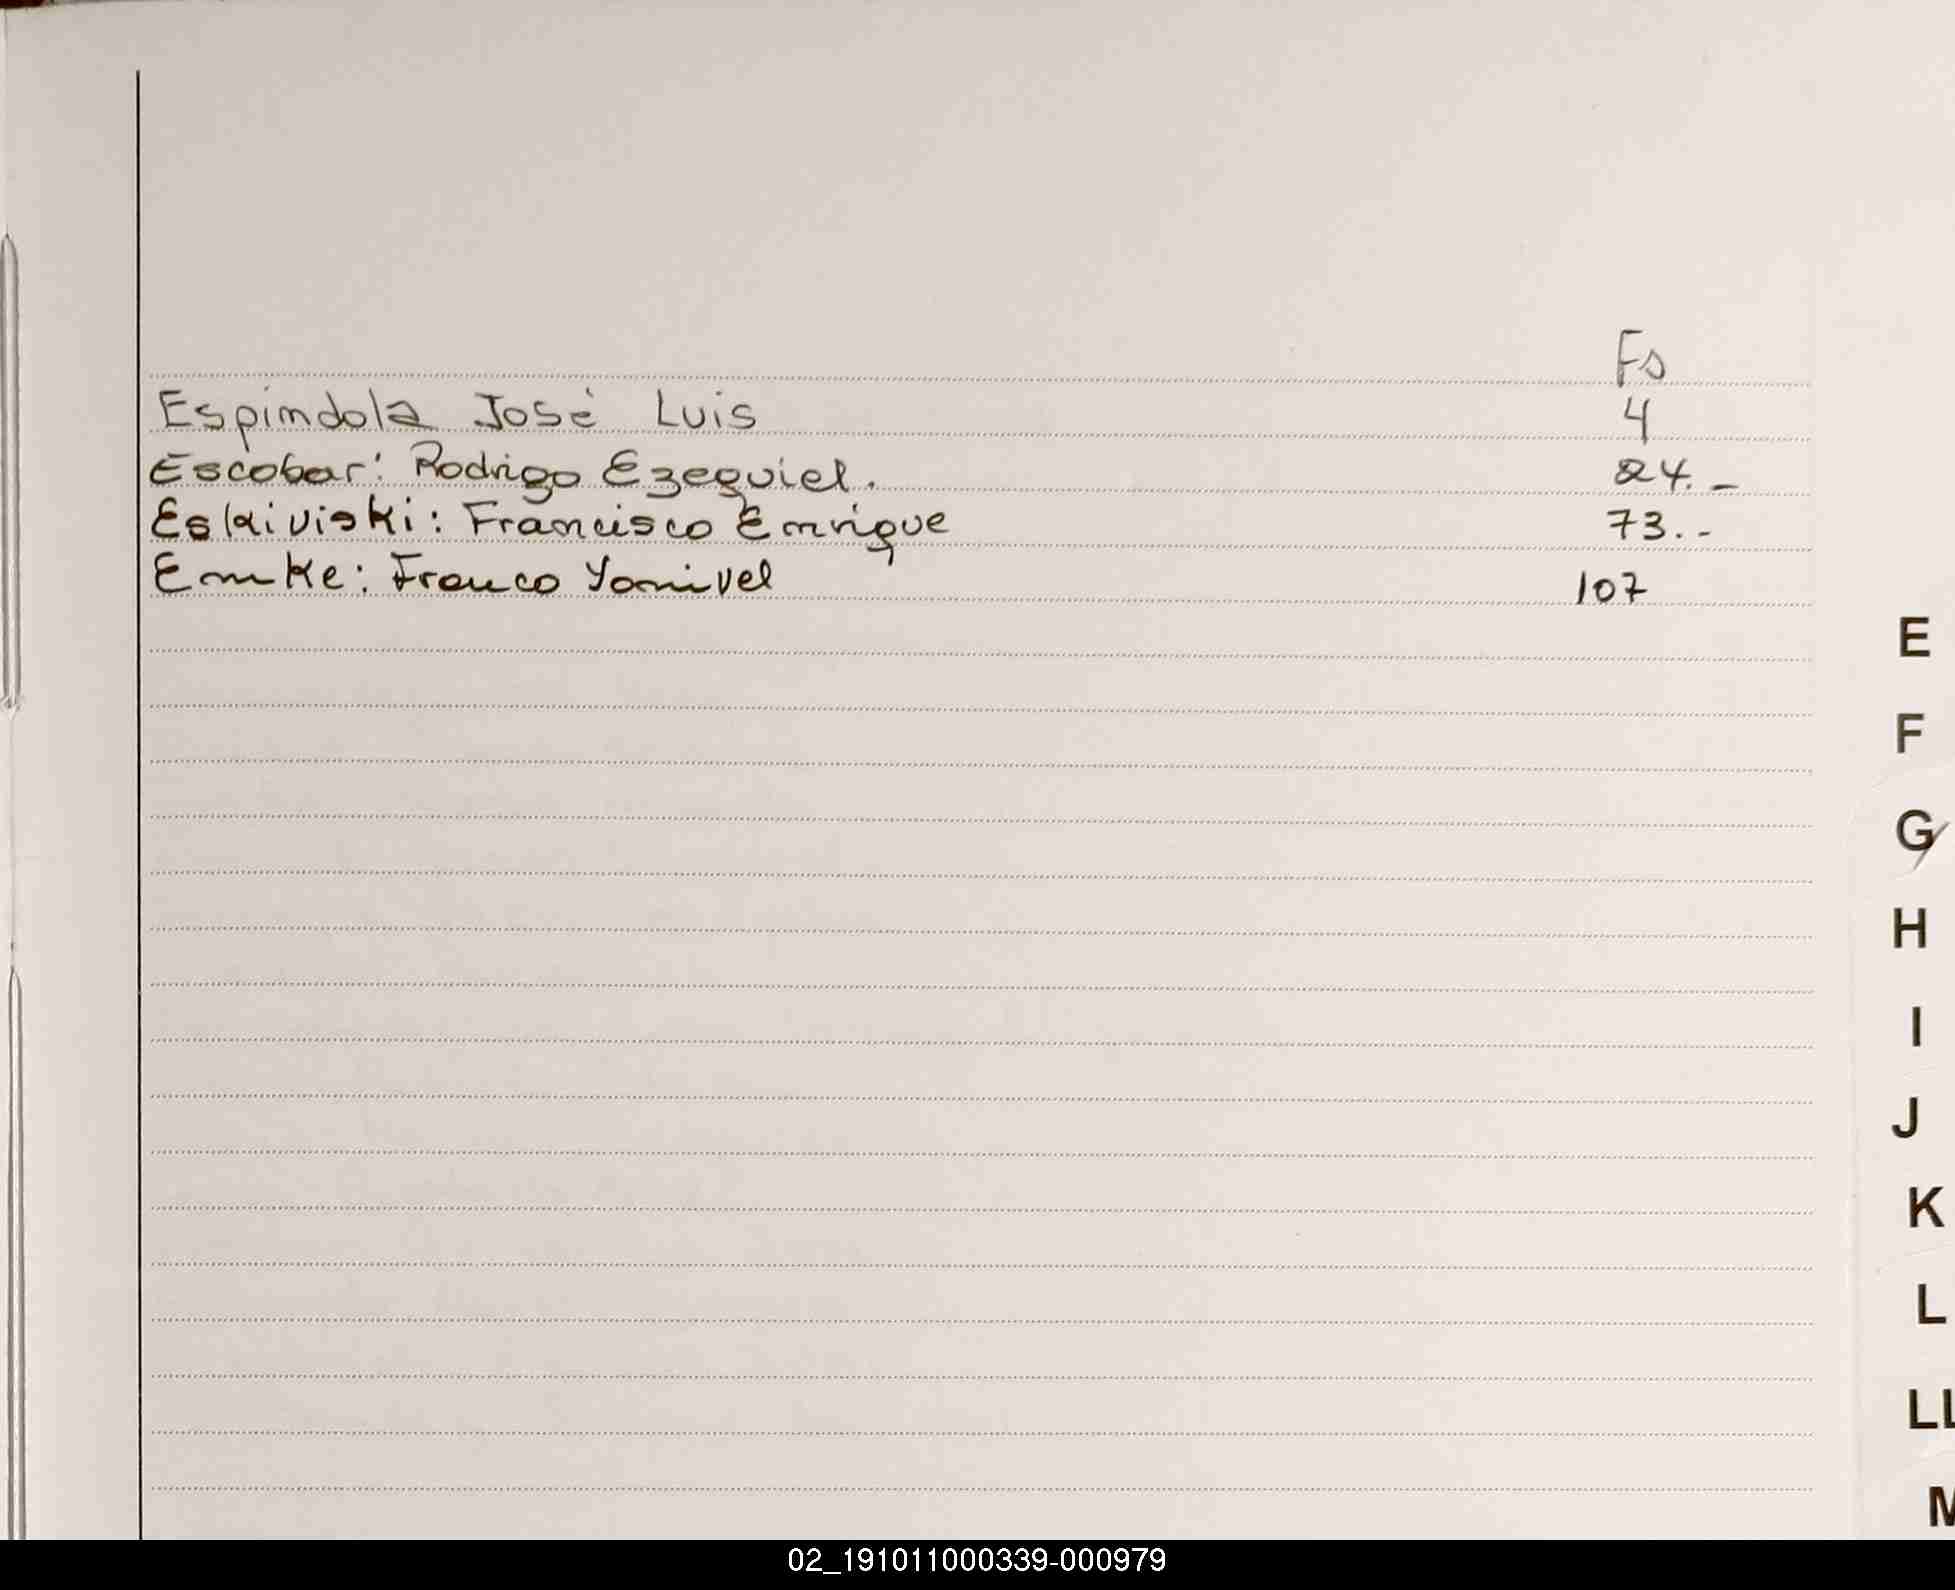 Fs
Espindola José Luis 4
Escobar: Rodrigo Ezequiel. 24.-
Eskiviski: Francisco Enrique 73.-
Emke: Franco Yonivel 107
E
F
G
H
I
J
K
L
LL
M
02_191011000339-000979